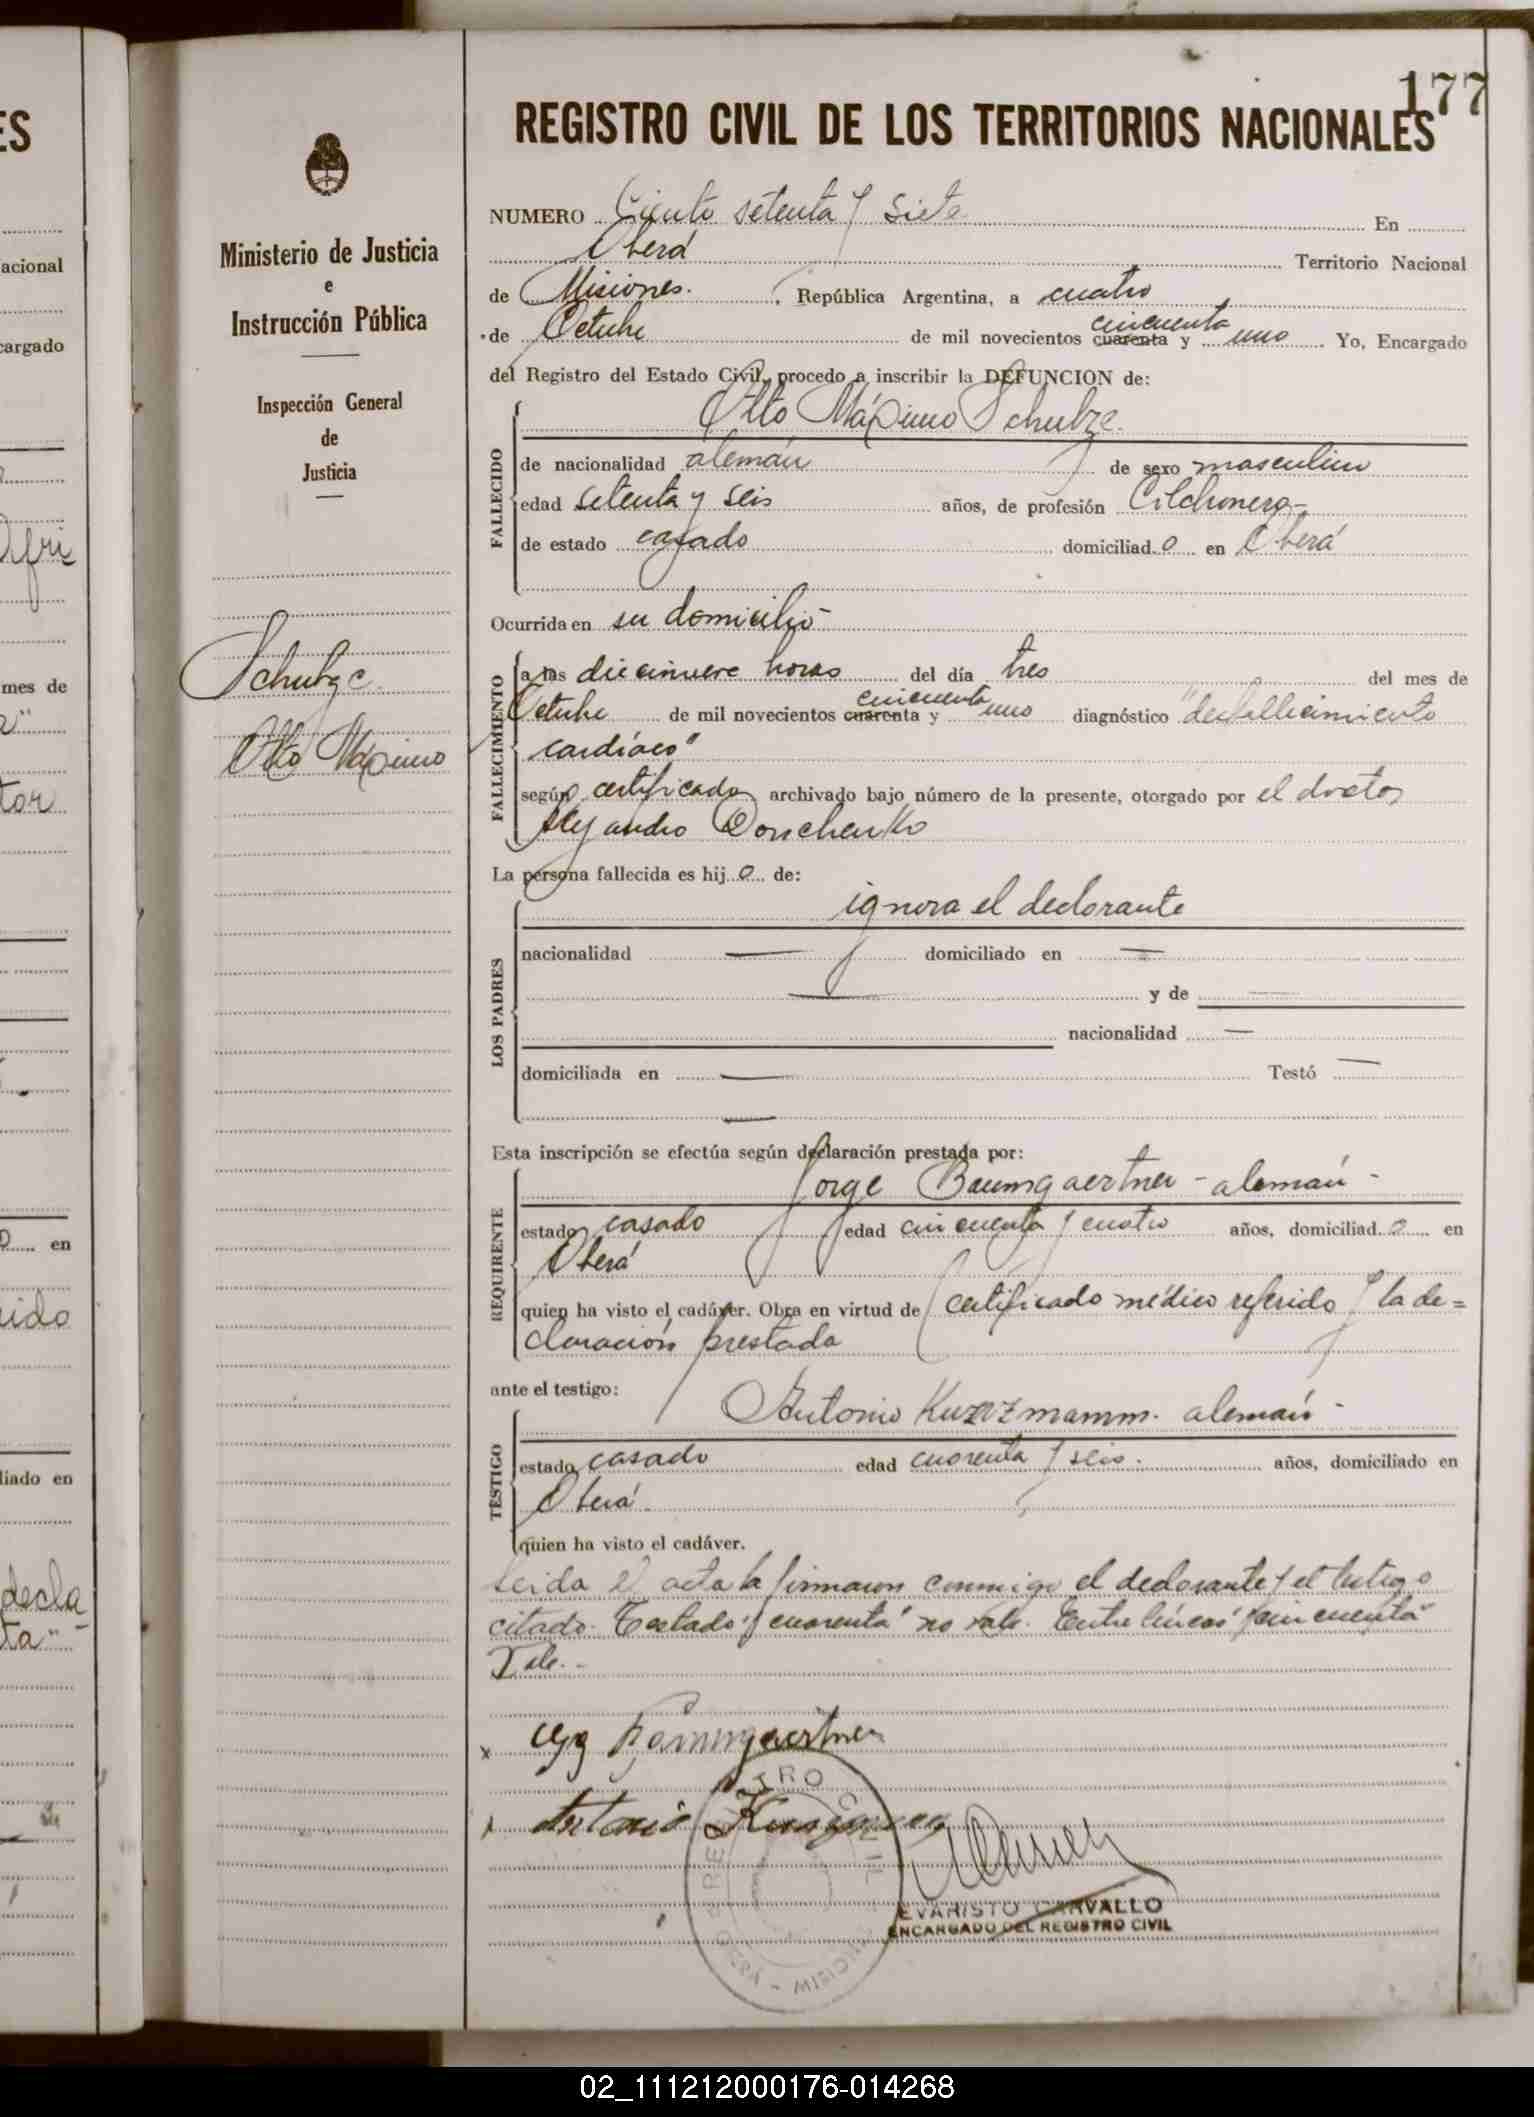 177
REGISTRO CIVIL DE LOS TERRITORIOS NACIONALES
Ministerio de Justicia
e
Instrucción Pública
Inspección General
de
Justicia
Schulze
Otto Máximo
NUMERO Ciento setenta y siete En
Oberá Territorio Nacional
de Misiones. República Argentina, a cuatro
de Octubre de mil novecientos cuarenta cincuenta y uno Yo, Encargado
del Registro del Estado Civil, procedo a inscribir la DEFUNCION de:
FALLECIDO
Otto Máximo Schulze.
de nacionalidad alemán de sexo masculino
edad setenta y seis años, de profesión Colchonero-
de estado casado domiciliado en Oberá
Ocurrida en su domicilio-
FALLECIMIENTO
a las diecinueve horas del día tres del mes de
Octubre de mil novecientos cuarenta cincuenta y uno diagnóstico "desfallecimiento
cardíaco"
según certificado archivado bajo número de la presente, otorgado por el doctor
Alejandro Donchenko
La persona fallecida es hijo de:
LOS PADRES
ignora el declarante
nacionalidad — domiciliado en —
— y de —
nacionalidad —
domiciliada en — Testó —
—
Esta inscripción se efectúa según declaración prestada por:
REQUIRENTE
Jorge Baumgaertner - alemán -
estado casado edad cincuenta y cuatro años, domiciliado en
Oberá
quien ha visto el cadáver. Obra en virtud de certificado médico referido y la de=
claración prestada
ante el testigo:
TESTIGO
Antonio Kurzmann. alemán -
estado casado edad cuarenta y seis. años, domiciliado en
Oberá.
quien ha visto el cadáver.
Leida el acta la firmaron conmigo el declarante y el testigo
citado. Testado "cuarenta" no vale. Entre líneas "cincuenta"
Vale.-
x Baumgaertner
x Antonio
REGISTRO CIVIL
OBERA - MISIONES
EVARISTO CARVALLO
ENCARGADO DEL REGISTRO CIVIL
02_111212000176-014268